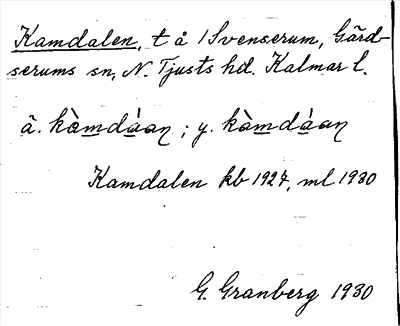 Kamdalen, t å 1 Svenserum, Gärd-
serums sn, N. Tjusts hd. Kalmar l.
ä. kàmdáaŋ; y. kàmdáaŋ
Kamdalen kb 1927, ml 1930
G. Granberg 1930